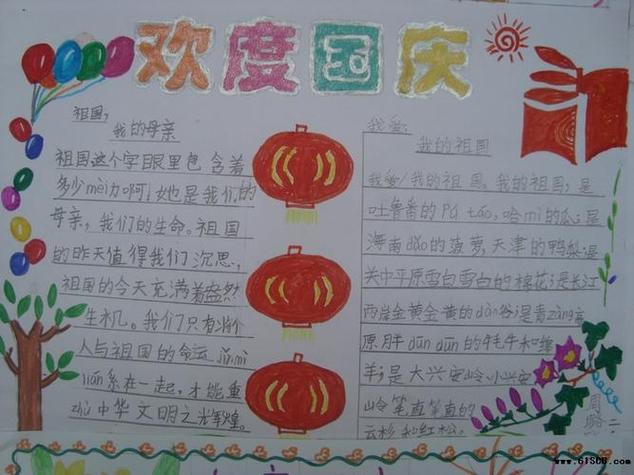 欢度国庆
祖国,
我的母亲
祖国这个字眼里包含着
多少mèi力啊!她是我们的
母亲,我们的生命。祖国
的昨天值得我们沉思,
祖国的今天充满着盎然
生机。我们只有将个
人与祖国的命运jǐnmì
lián系在一起,才能重
zhù中华文明之光辉煌。
我爱,
我的祖国
我爱!我的祖国。我的祖国;是
吐鲁番的Pú táo,哈mì的瓜;是
海南dǎo的菠萝,天津的鸭梨;是
关中平原雪白雪白的棉花;是长江
两岸金黄金黄的dào谷;是青zàng高
原胖dūn dūn的牦牛和绵
羊;是大兴安岭小兴安
岭笔直笔直的
云杉和红松。
周
二
www.61508.com